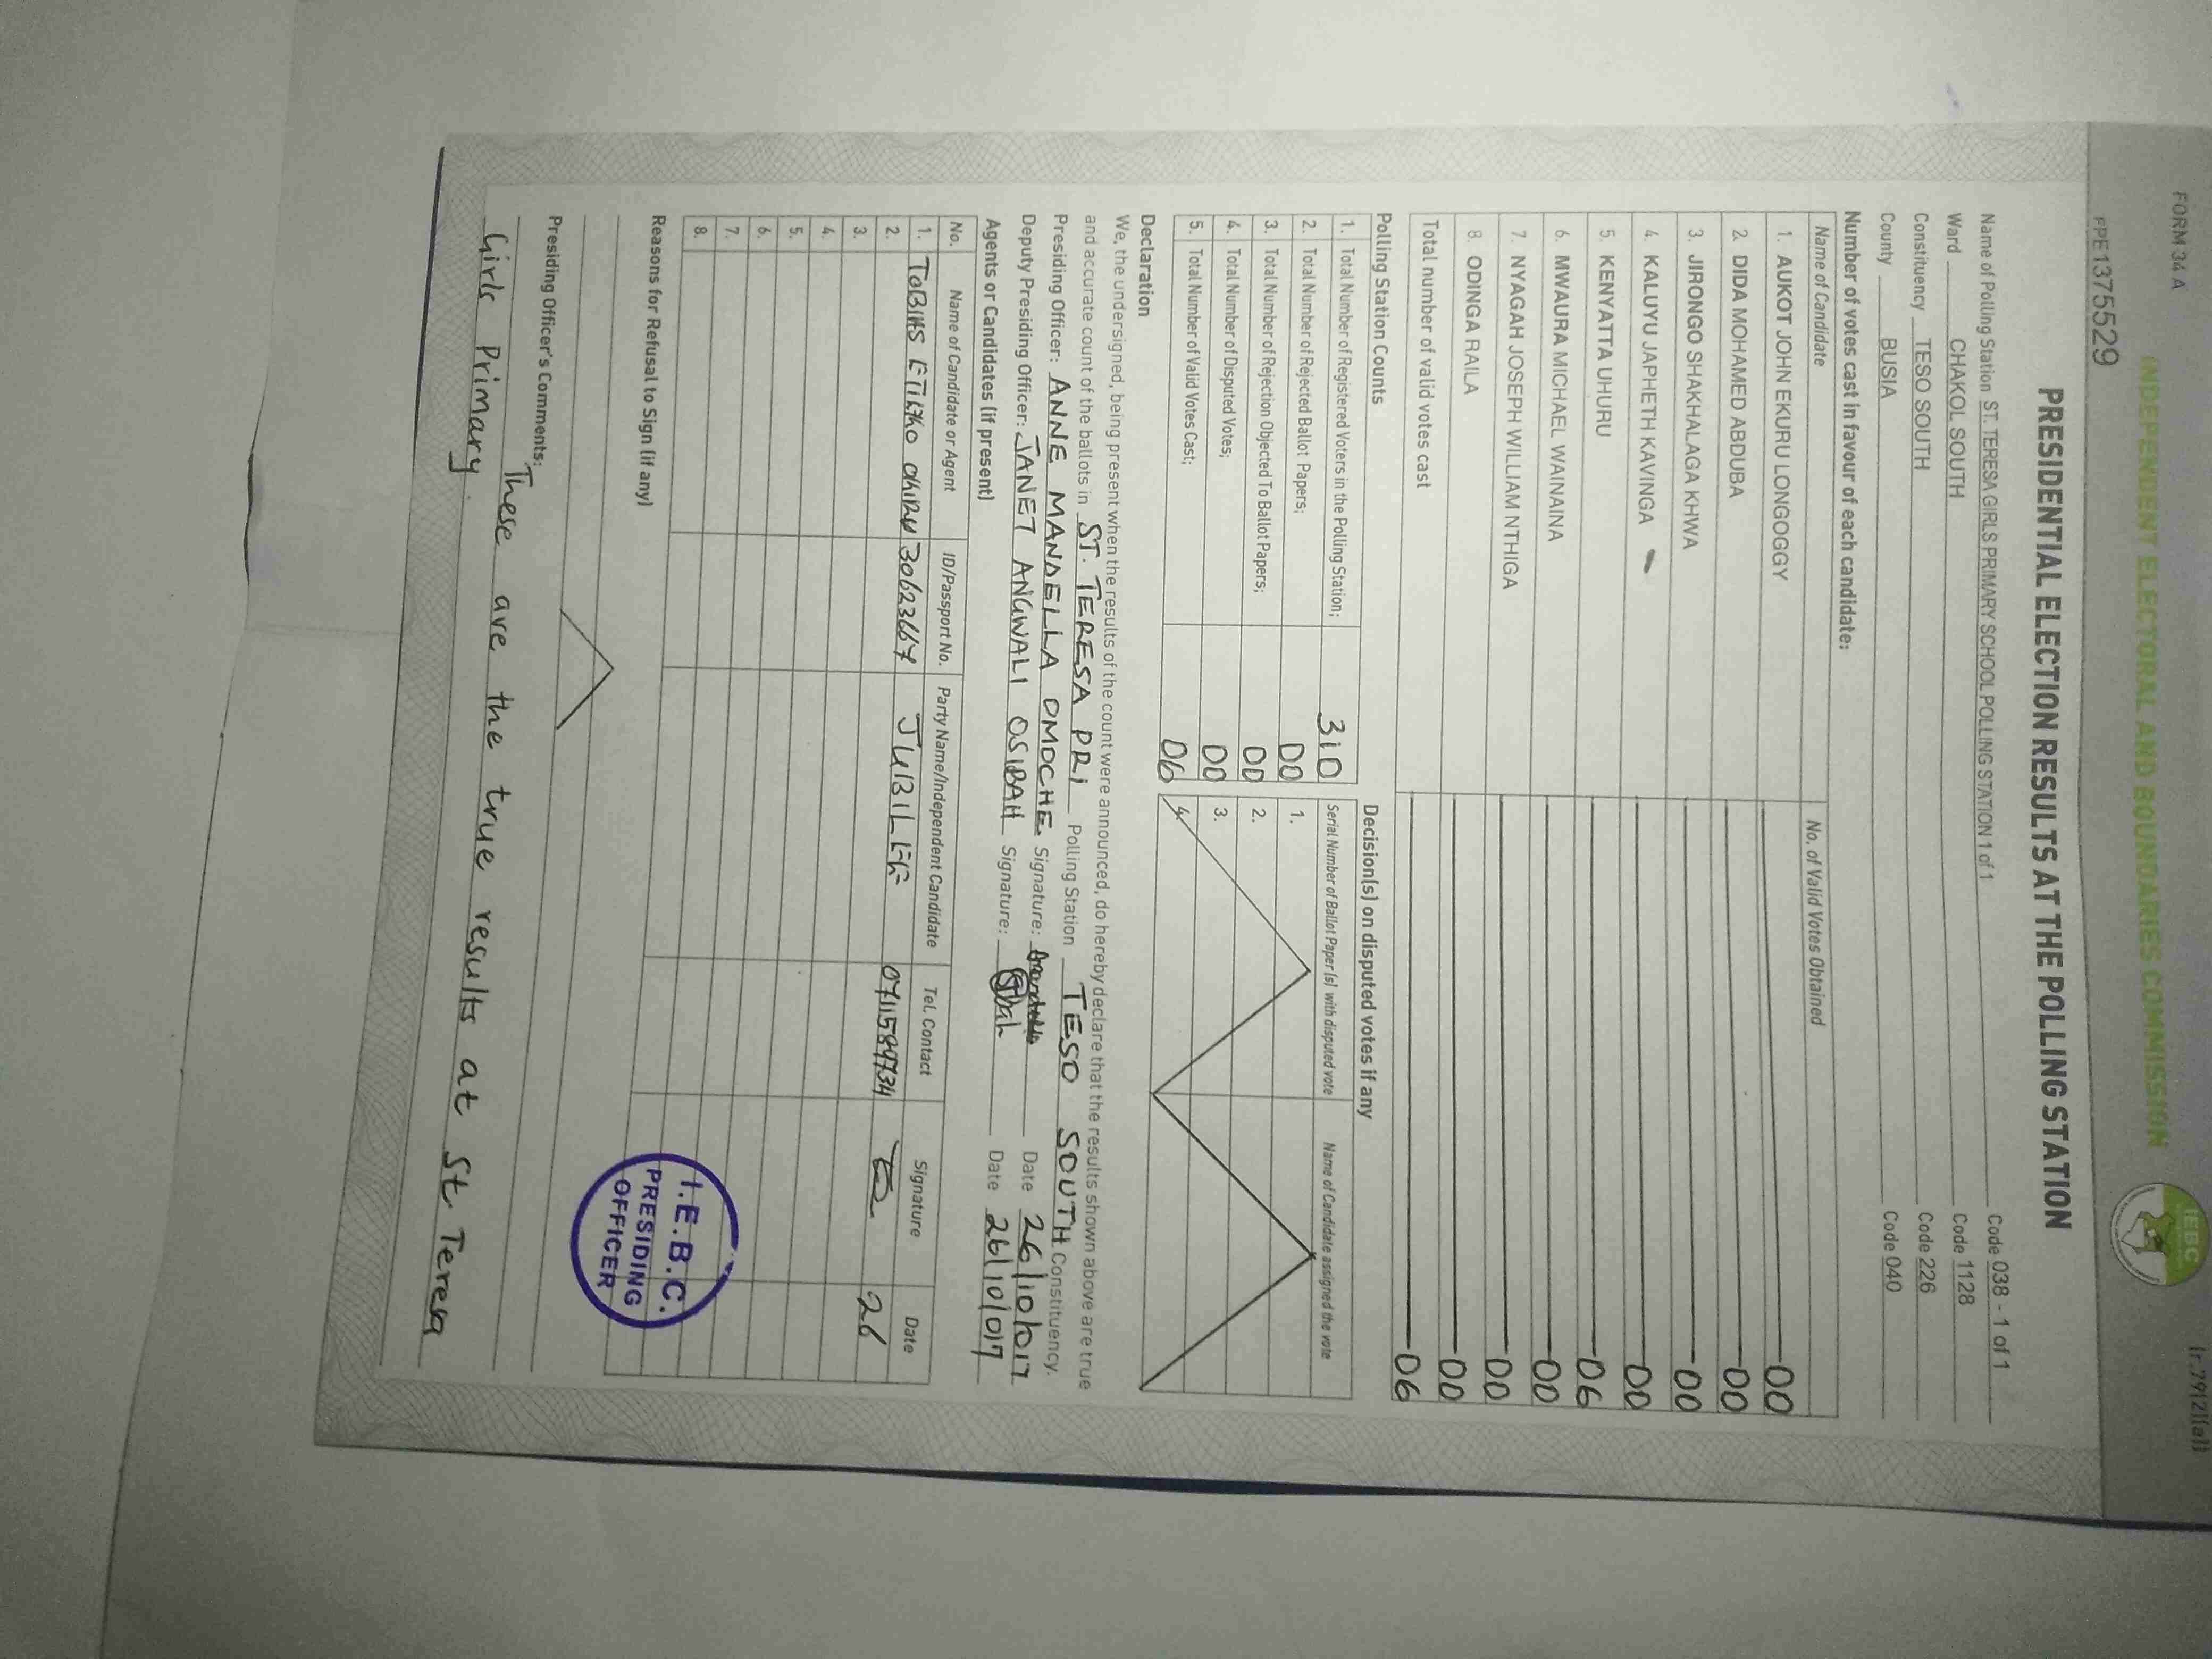 FORM 34 A
INDEPENDENT ELECTORAL AND BOUNDARIES COMMISSION
IEBC
PPE1375529
PRESIDENTIAL ELECTION RESULTS AT THE POLLING STATION
Name of Polling Station ST. TERESA GIRLS PRIMARY SCHOOL POLLING STATION 1 of 1 Code 038 - 1 of 1
Ward CHAKOL SOUTH Code 1128
Constituency TESO SOUTH Code 226
County BUSIA Code 040
Number of votes cast in favour of each candidate:
Name of Candidate No. of Valid Votes Obtained
1. AUKOT JOHN EKURU LONGOGGY 00
2. DIDA MOHAMED ABDUBA 00
3. JIRONGO SHAKHALAGA KHWA 00
4. KALUYU JAPHETH KAVINGA 00
5. KENYATTA UHURU 06
6. MWAURA MICHAEL WAINAINA 00
7. NYAGAH JOSEPH WILLIAM NTHIGA 00
8. ODINGA RAILA 00
Total number of valid votes cast 06
Polling Station Counts
1. Total Number of Registered Voters in the Polling Station; 310
2. Total Number of Rejected Ballot Papers; 00
3. Total Number of Rejection Objected To Ballot Papers; 00
4. Total Number of Disputed Votes; 00
5. Total Number of Valid Votes Cast; 06
Decision(s) on disputed votes if any
Serial Number of Ballot Paper (s) with disputed vote Name of Candidate assigned the vote
1.
2.
3.
4.
Declaration
We, the undersigned, being present when the results of the count were announced, do hereby declare that the results shown above are true
and accurate count of the ballots in ST. TERESA PRI Polling Station TESO SOUTH Constituency.
Presiding Officer: ANNE MANDELLA OMOCHE Signature: Date 26/10/017
Deputy Presiding Officer: JANET ANGWALI OSIBAH Signature: Date 26/10/017
Agents or Candidates (if present)
No. Name of Candidate or Agent ID/Passport No. Party Name/Independent Candidate Tel. Contact Signature Date
1. TOBIAS 30623667 JUBILEE 0711589734 26
2.
3.
4.
5.
6.
7.
8.
I.E.B.C.
PRESIDING
OFFICER
Reasons for Refusal to Sign (if any)
Presiding Officer's Comments:
These are the true results at St Teresa
Girls Primary.